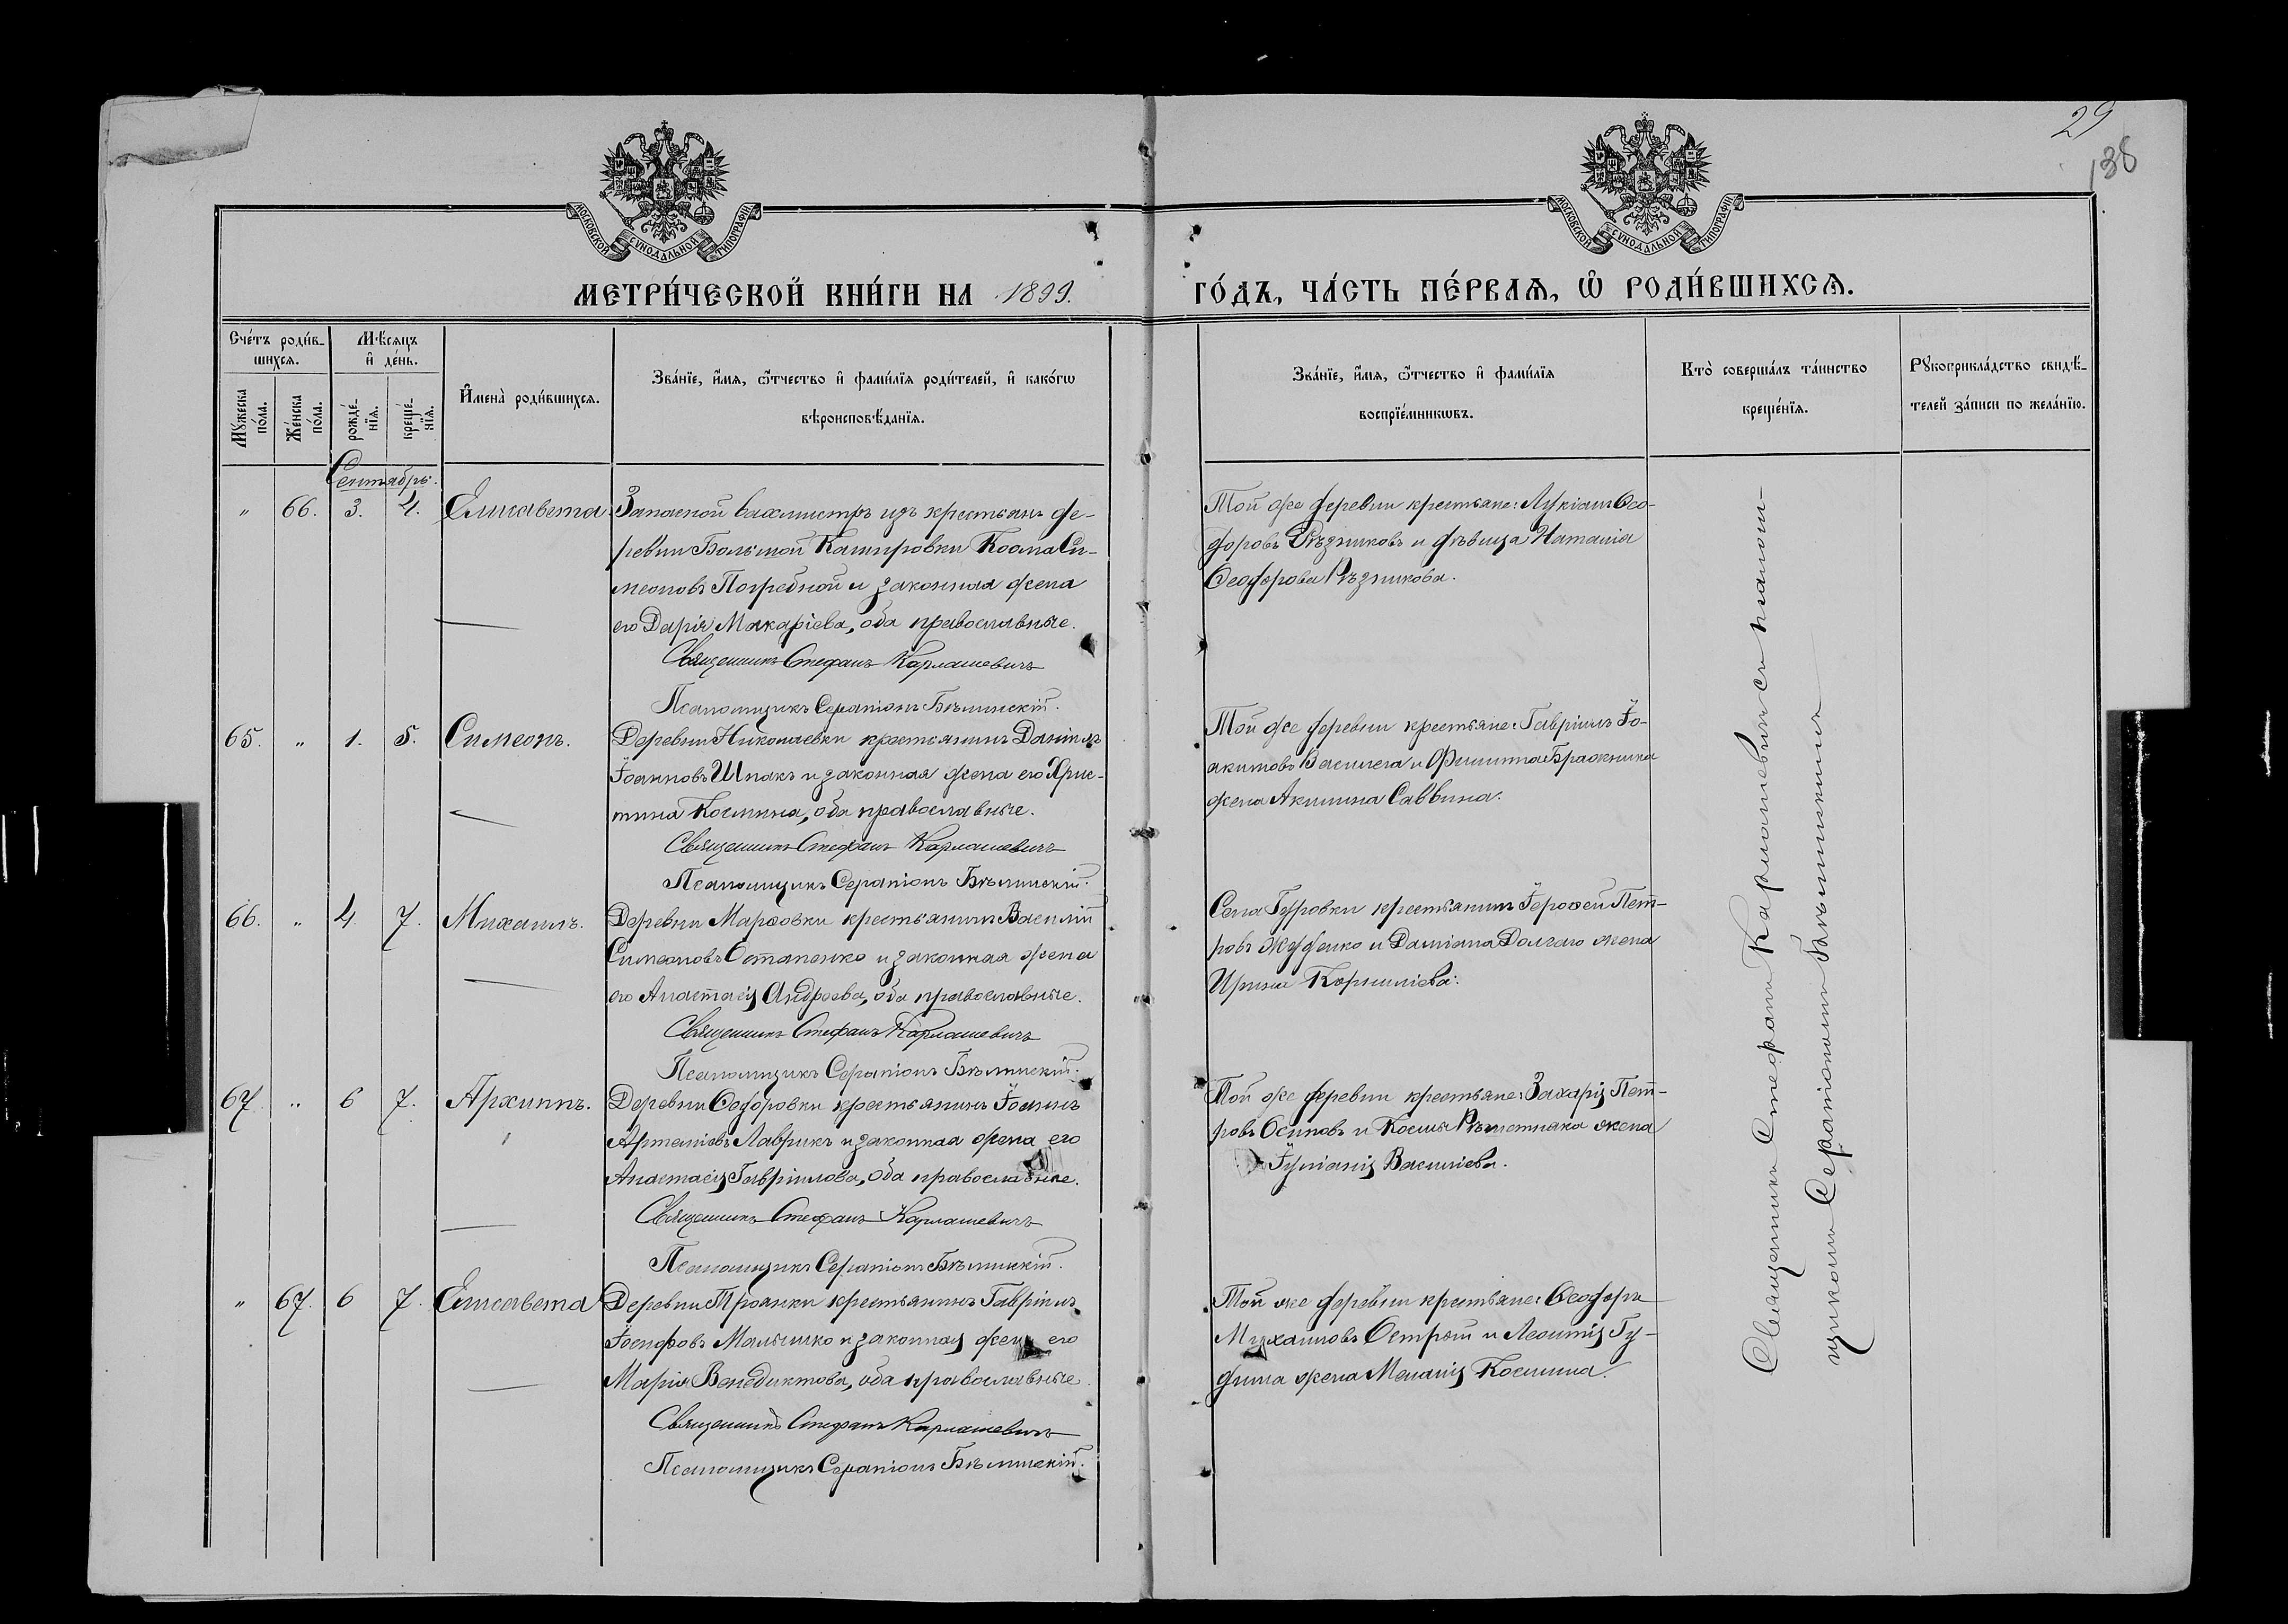 29
138
МОСКОВСКОЙ СѴНОДАЛЬНОЙ ТИПОГРАФІИ
МОСКОВСКОЙ СѴНОДАЛЬНОЙ ТИПОГРАФІИ
МЕТРИ́ЧЕСКОЙ КНИ́ГИ НА 1899.
ГО́ДЪ, ЧА́СТЬ ПЕ́РВАѦ, Ѡ҆ РОДИ́ВШИХСѦ.
Сче́тъ роди́в-
шихсѧ.
Мѣ́сѧцъ
и҆ де́нь.
Мꙋ́жеска
по́ла.
Же́нска
по́ла.
рожде́-
нїѧ.
креще́-
нїѧ.
И҆мена̀ роди́вшихсѧ.
Зва́нїе, и҆́мѧ, ѻ҆́тчество и҆ фами́лїѧ роди́телей, и҆ како́гѡ
вѣроисповѣ́данїѧ.
Зва́нїе, и҆́мѧ, ѻ҆́тчество и҆ фами́лїѧ
воспрїе́мникѡвъ.
Кто̀ соверша́лъ та́инство
креще́нїѧ.
Рꙋкоприкла́дство свидѣ́-
телей за́писи по жела́нїю.
Сентябрь.
" 66. 3. 4. Елисавета.
Запасной вахмистръ изъ крестьянъ де-
ревни Большой Кашировки Косма Си-
меоновъ Погребной и законная жена
его Дарія Макаріева, оба православные.
Священникъ Стефанъ Кармашевичъ
Псаломщикъ Серапіонъ Бѣлинскій.
Той же деревни крестьяне: Лукіанъ Ѳео-
доровъ Рѣзниковъ и дѣвица Наталія
Ѳеодорова Рѣзникова.
65. " 1. 5. Симеонъ.
Деревни Николаевки крестьянинъ Даніилъ
Іоанновъ Шпакъ и законная жена его Хрис-
тина Космина, оба православные.
Священникъ Стефанъ Кармашевичъ
Псаломщикъ Серапіонъ Бѣлинскій.
Той же деревни крестьяне: Гавріилъ Іо-
акимовъ Василега и Филиппа Бражника
жена Акилина Саввина.
66. " 4. 7. Михаилъ.
Деревни Марѳовки крестьянинъ Василій
Симеоновъ Остапенко и законная жена
его Анастасія Андреева, оба православные.
Священникъ Стефанъ Кармашевичъ
Псаломщикъ Серапіонъ Бѣлинскій.
Села Гуровки крестьянинъ Іероѳей Пет-
ровъ Жуденко и Даміана Долгаго жена
Ирина Корниліева.
67. " 6 7. Архиппъ.
Деревни Ѳедоровки крестьянинъ Іоаннъ
Артеміевъ Лаврикъ и законная жена его
Анастасія Гавріилова, оба православные.
Священникъ Стефанъ Кармашевичъ
Псаломщикъ Серапіонъ Бѣлинскій.
Той же деревни крестьяне: Захарія Пет-
ровъ Осиповъ и Космы Рѣшетняка жена
Іуліанія Василіева.
" 67. 6 7. Елисавета
Деревни Троянки крестьянинъ Гавріилъ
Іосифовъ Малышко и законная жена его
Марія Венедиктова, оба православные.
Священникъ Стефанъ Кармашевичъ
Псаломщикъ Серапіонъ Бѣлинскій.
Той же деревни крестьяне: Ѳеодоръ
Михаиловъ Острый и Леонтія Гу-
дыма жена Меланія Космина.
Священникъ Стефанъ Кармашевичъ съ псалом-
щикомъ Серапіономъ Бѣлинскимъ